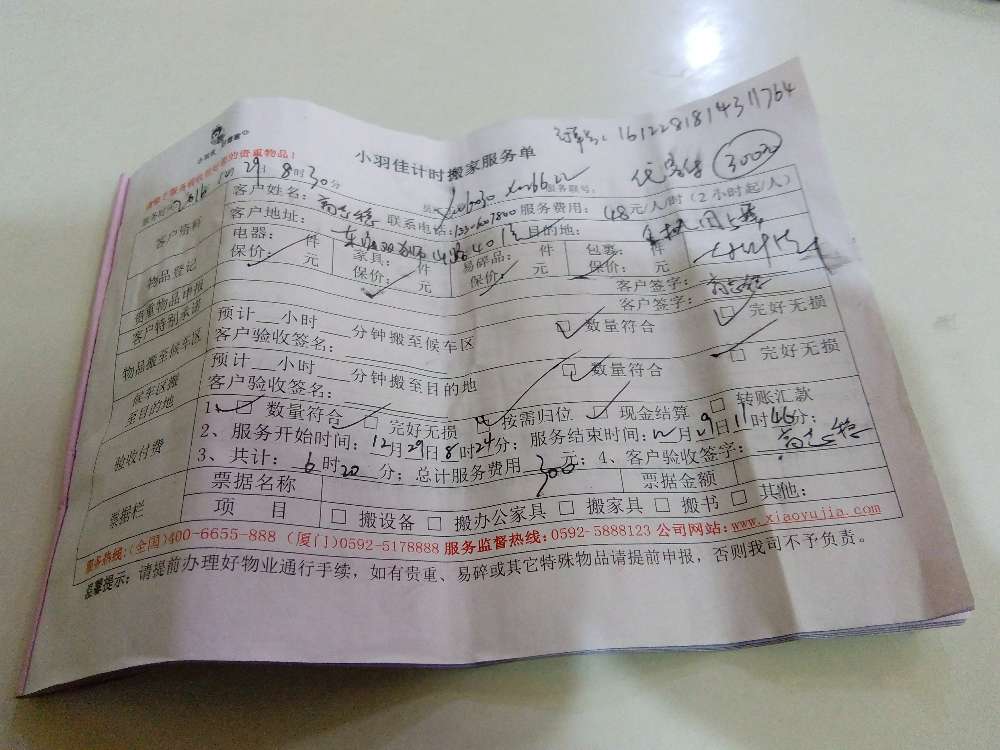 订单号: 1612281814311764
小羽佳计时搬家服务单
优惠后 300元
的贵重物品!
服务时间: 2016 12 29日 8时30分
客户资料
客户姓名: 联系电话: 服务费用: 48元/人/时(2小时起/人)
客户地址: 目的地:
物品登记
电器: 件 家具: 件 易碎品: 件 包裹: 件
保价: 元 保价: 元 保价: 元 保价: 元
贵重物品申报 客户签字:
客户特别承诺 客户签字:
物品搬至候车区
预计__小时___分钟搬至候车区 □ 数量符合 □ 完好无损
客户验收签名:
候车区搬至目的地
预计__小时___分钟搬至目的地 □ 数量符合 □ 完好无损
客户验收签名:
验收付费
1、□ 数量符合 □ 完好无损 □ 按需归位 □ 现金结算 □ 转账汇款
2、服务开始时间: 12月29日8时24分; 服务结束时间: 12月29日11时46分;
3、共计: 6时20分; 总计服务费用 300元; 4、客户验收签字:
票据栏
票据名称 票据金额
项 目 □ 搬设备 □ 搬办公家具 □ 搬家具 □ 搬书 □ 其他:
服务热线:(全国)400-6655-888 (厦门)0592-5178888 服务监督热线:0592-5888123 公司网站:www.xiaoyujia.com
温馨提示: 请提前办理好物业通行手续, 如有贵重、易碎或其它特殊物品请提前申报, 否则我司不予负责。